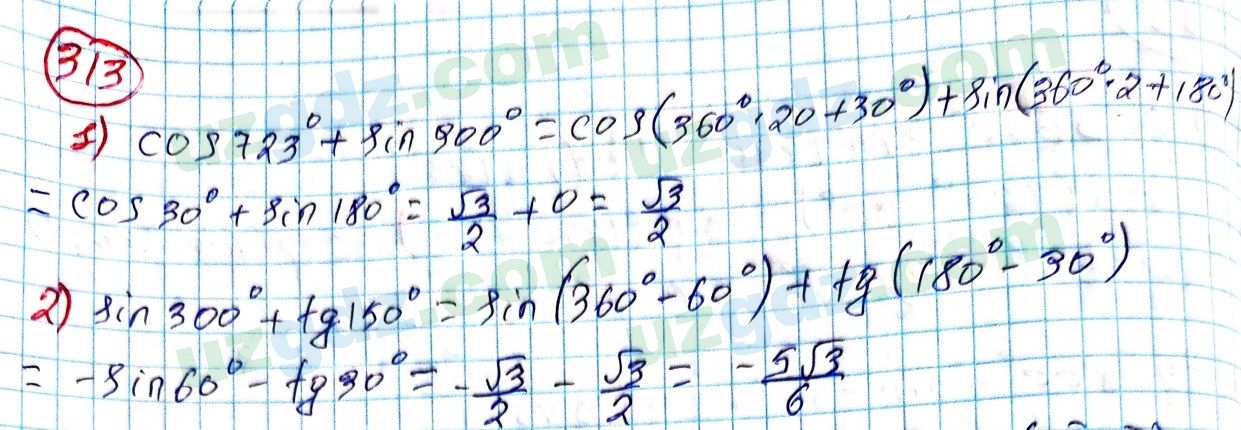 313
1) cos 723° + sin 900° = cos(360° · 20 + 30°) + sin(360° · 2 + 180°)
= cos 30° + sin 180° = √3/2 + 0 = √3/2
2) sin 300° + tg 150° = sin(360° - 60°) + tg(180° - 30°)
= -sin 60° - tg 30° = -√3/2 - √3/2 = -5√3/6
uzgdz.com
uzgdz.com
uzgdz.com
uzgdz.com